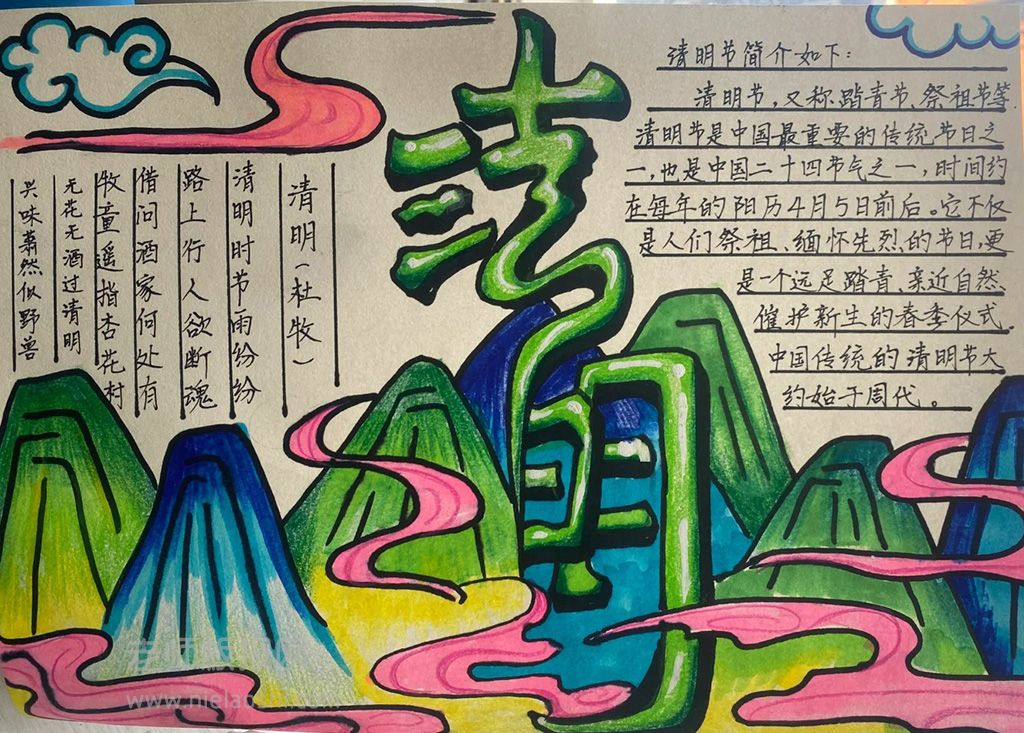 清明
清明（杜牧）
清明时节雨纷纷
路上行人欲断魂
借问酒家何处有
牧童遥指杏花村
无花无酒过清明
兴味萧然似野兽
清明节简介如下：
清明节,又称踏青节、祭祖节等.
清明节是中国最重要的传统节日之
一,也是中国二十四节气之一,时间约
在每年的阳历4月5日前后。它不仅
是人们祭祖、缅怀先烈的节日,更
是一个远足踏青、亲近自然、
催护新生的春季仪式.
中国传统的清明节大
约始于周代。